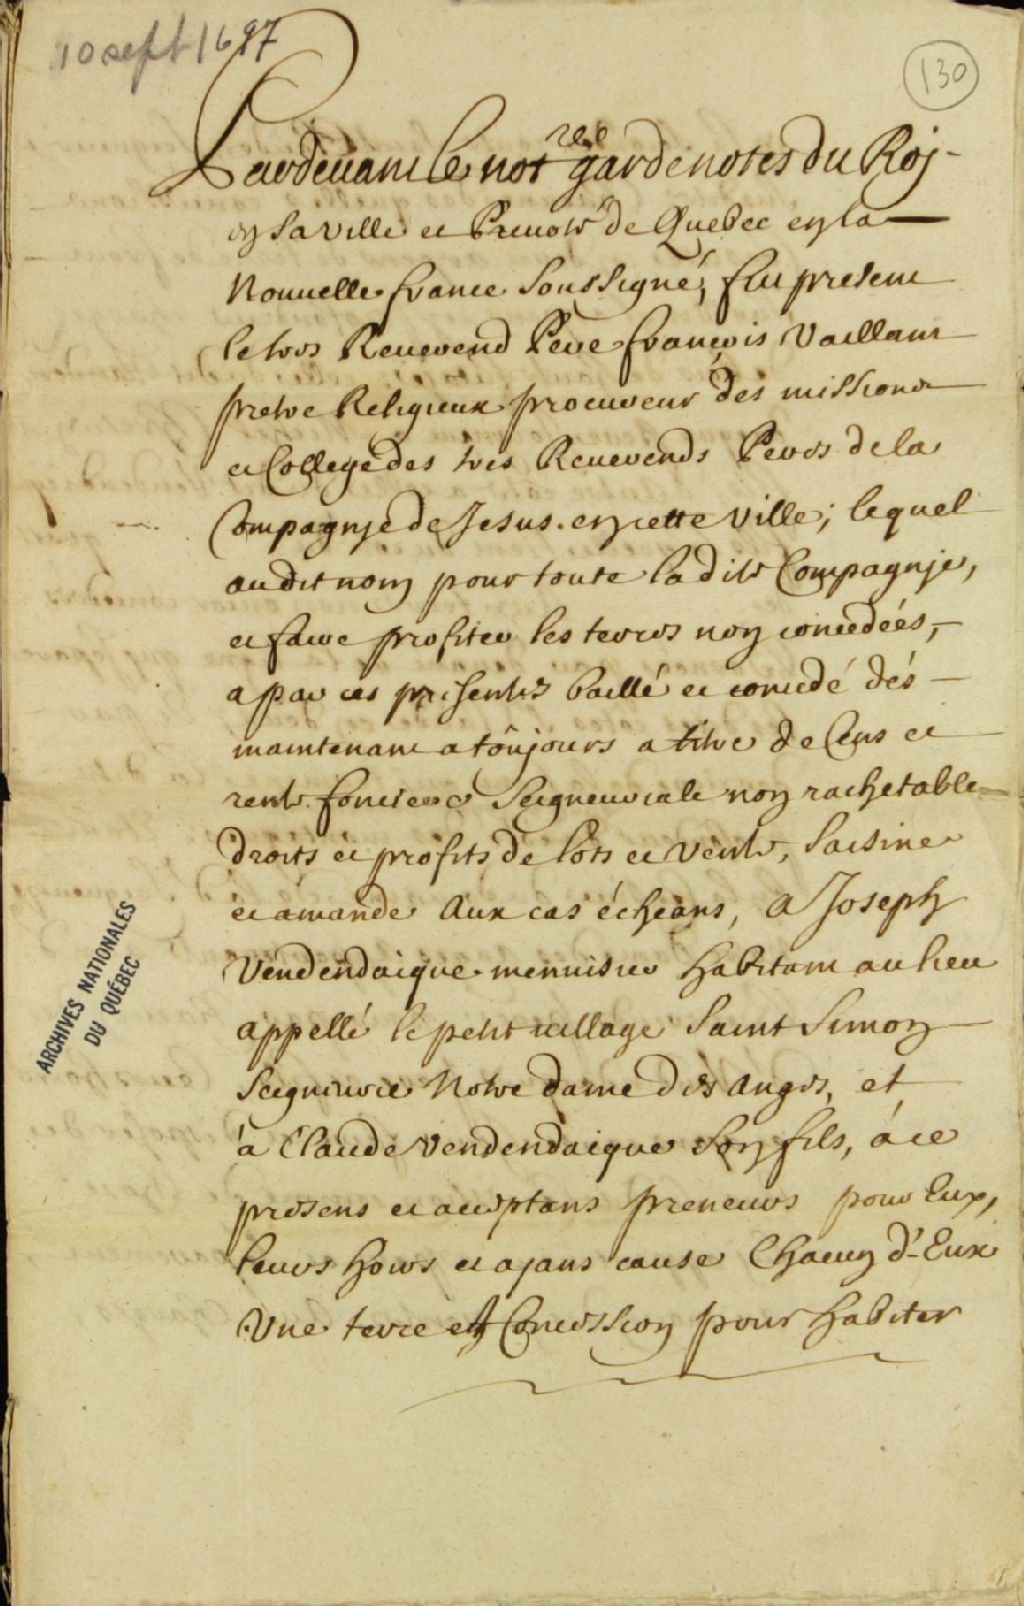 10 sept 1697
130
Pardevant le not re garde notes du Roj
en la ville et Prevosté de Quebec en la
Nouvelle france soussigné, fut present
le tres Reverend Pere françois Vaillant
pretre Religieux procureur des missions
et College des tres Reverends Peres de la
Compagnje de Jesus en cette ville; lequel
audit nom pour toute ladite Compagnje,
et faire profiter les terres non concedées,
a par ces presentes baillé et concedé dés
maintenant a tôujours a titre de Cens et
rente fonciere Seigneuriale non rachetable
droits et profits de lots et vente, saisine
et amande Aux cas écheans, A Joseph
Vendendaigue mennisier habitant au lieu
appellé le petit village Saint Simon
Seigneurie Notre Dame des Anges, et
à Claude Vendendaigue son fils, á ce
presens et acceptans preneurs pour Eux,
leurs hoirs et ajans cause Chacun d'Eux
Une terre et Concession pour habiter
ARCHIVES NATIONALES
DU QUÉBEC